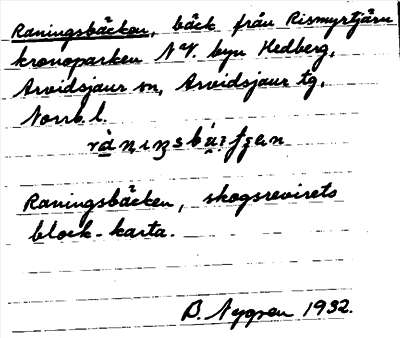 Raningsbäcken, bäck från Rismyrtjärn
kronoparken NV. byn Hedberg,
Arvidsjaur sn, Arvidsjaur tg,
Norrb. l.
Raningsbäcken, skogsrevirets
block-karta.
B. Nygren 1932.